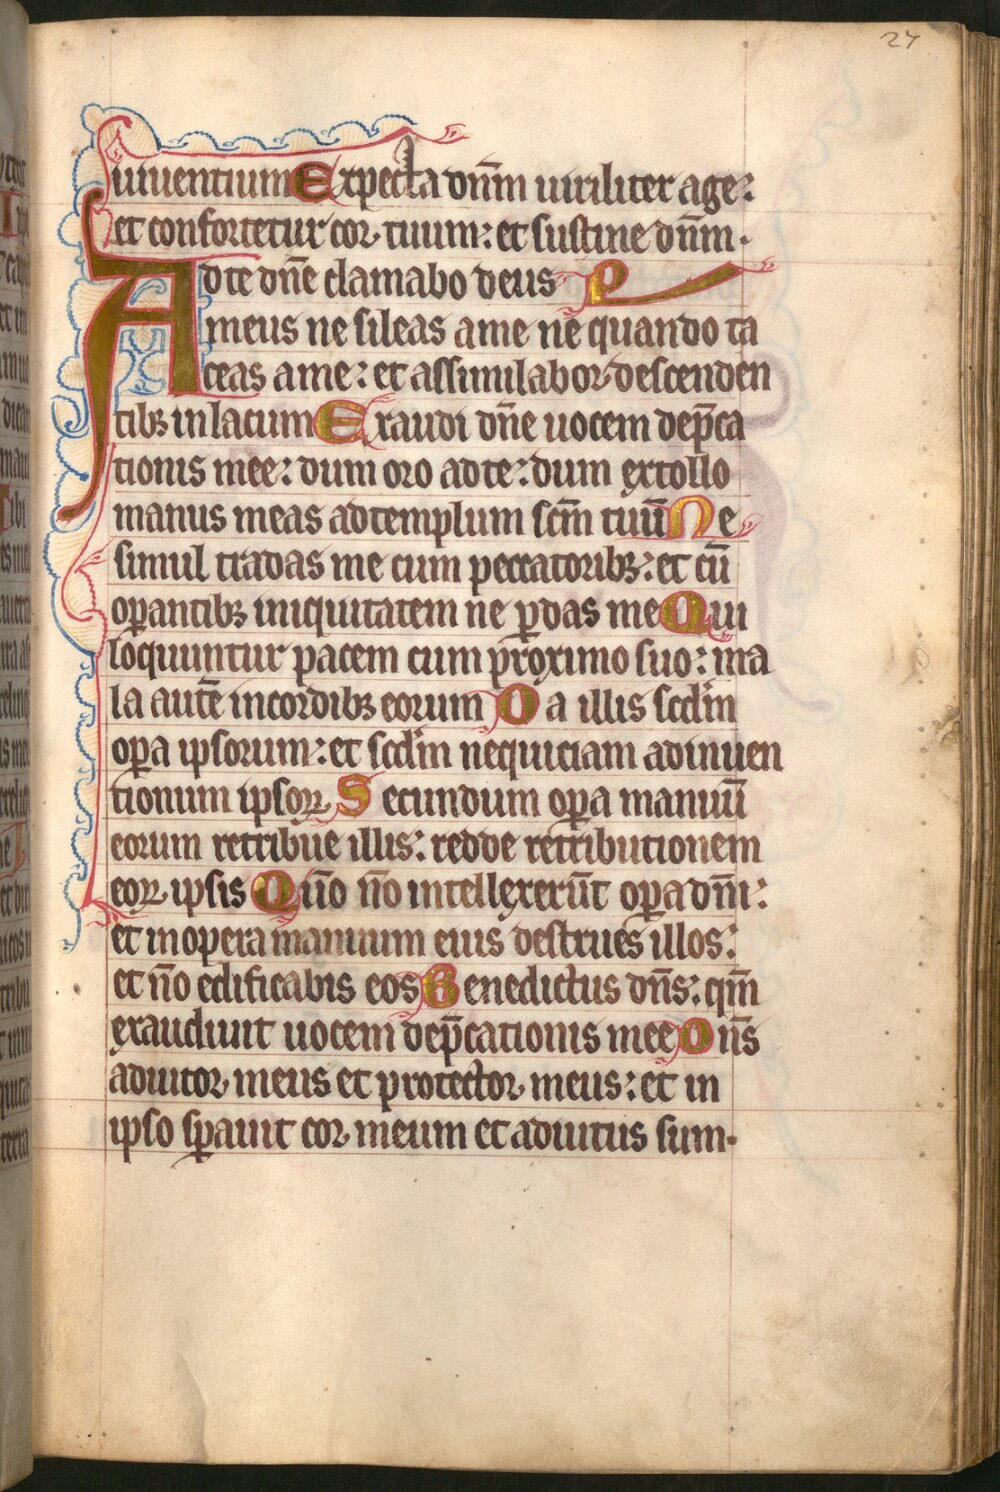 27
uiuentium Expecta dn̄m uiriliter age:
et confortetur cor tuum: et sustine dn̄m.
Ad te dn̄e clamabo deus P
meus ne sileas a me ne quando ta
ceas a me: et assimilabor descenden
tibꝫ in lacum Exaudi dn̄e uocem dep̄ca
tionis mee: dum oro ad te: dum extollo
manus meas ad templum scm̄ tuū Ne
simul tradas me cum peccatoribꝫ: et cū
oꝑantibꝫ iniquitatem ne ꝑdas me Qui
loquuntur pacem cum proximo suo: ma
la autē in cordibꝫ eorum Da illis scd̄m
oꝑa ipsorum: et scd̄m nequiciam adinuen
tionum ipsoꝝ Secundum oꝑa manuū
eorum retribue illis: redde retributionem
eoꝝ ipsis Qūo n̄o intellexerūt oꝑa dn̄i:
et in opera manuum eius destrues illos:
et n̄o edificabis eos Benedictus dn̄s: qm̄
exaudiuit uocem dep̄cationis mee Dn̄s
adiutor meus et protector meus: et in
ipso sꝑauit cor meum et adiutus sum.